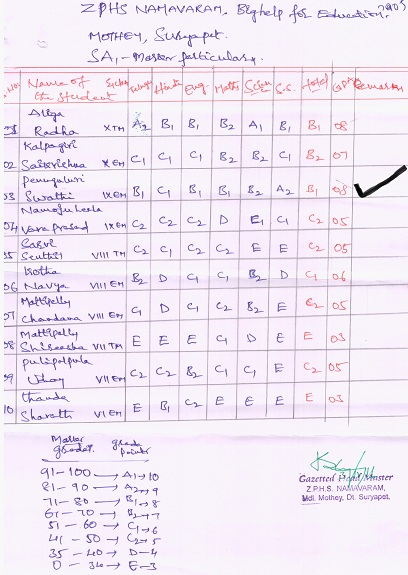 ZPHS NAMAVARAM, Big help for Education,
MOTHEY, Suryapet.
SA1 - Master particulars.
Name of the Student Telugu Hindi Eng Maths S.S. Total GPA Remarks
Radha X TM A2 B1 B1 B2 A1 B1 B1 08
02 Kalpagiri X EM C1 C1 C1 B2 B2 C1 B2 07
03 Peruguluri Swathi IX EM B1 C1 B1 B1 B2 A2 B1 08
04 Vara Prasad IX EM C2 C2 C2 D E1 C1 C2 05
VIII TM C2 C1 C2 C2 E E C2 05
06 Kotha Navya VIII EM B2 D C1 C1 B2 D C1 06
07 Mattipelly Chandana VIII EM C1 D C1 C2 B2 E C2 05
08 Mattipelly Shireesha VII TM E E E C1 D E E 03
09 Uday VII EM C2 C2 B2 C1 C1 E C2 05
10 Thanda Sharath VI EM E B1 C2 E E E E 03
grade Points
91-100 → A1-10
81-90 → A2-9
71-80 → B1-8
61-70 → B2-7
51-60 → C1-6
41-50 → C2-5
35-40 → D-4
0-34 → E-3
Gazetted Head Master
Z.P.H.S. NAMAVARAM,
Mdl. Mothey, Dt. Suryapet.